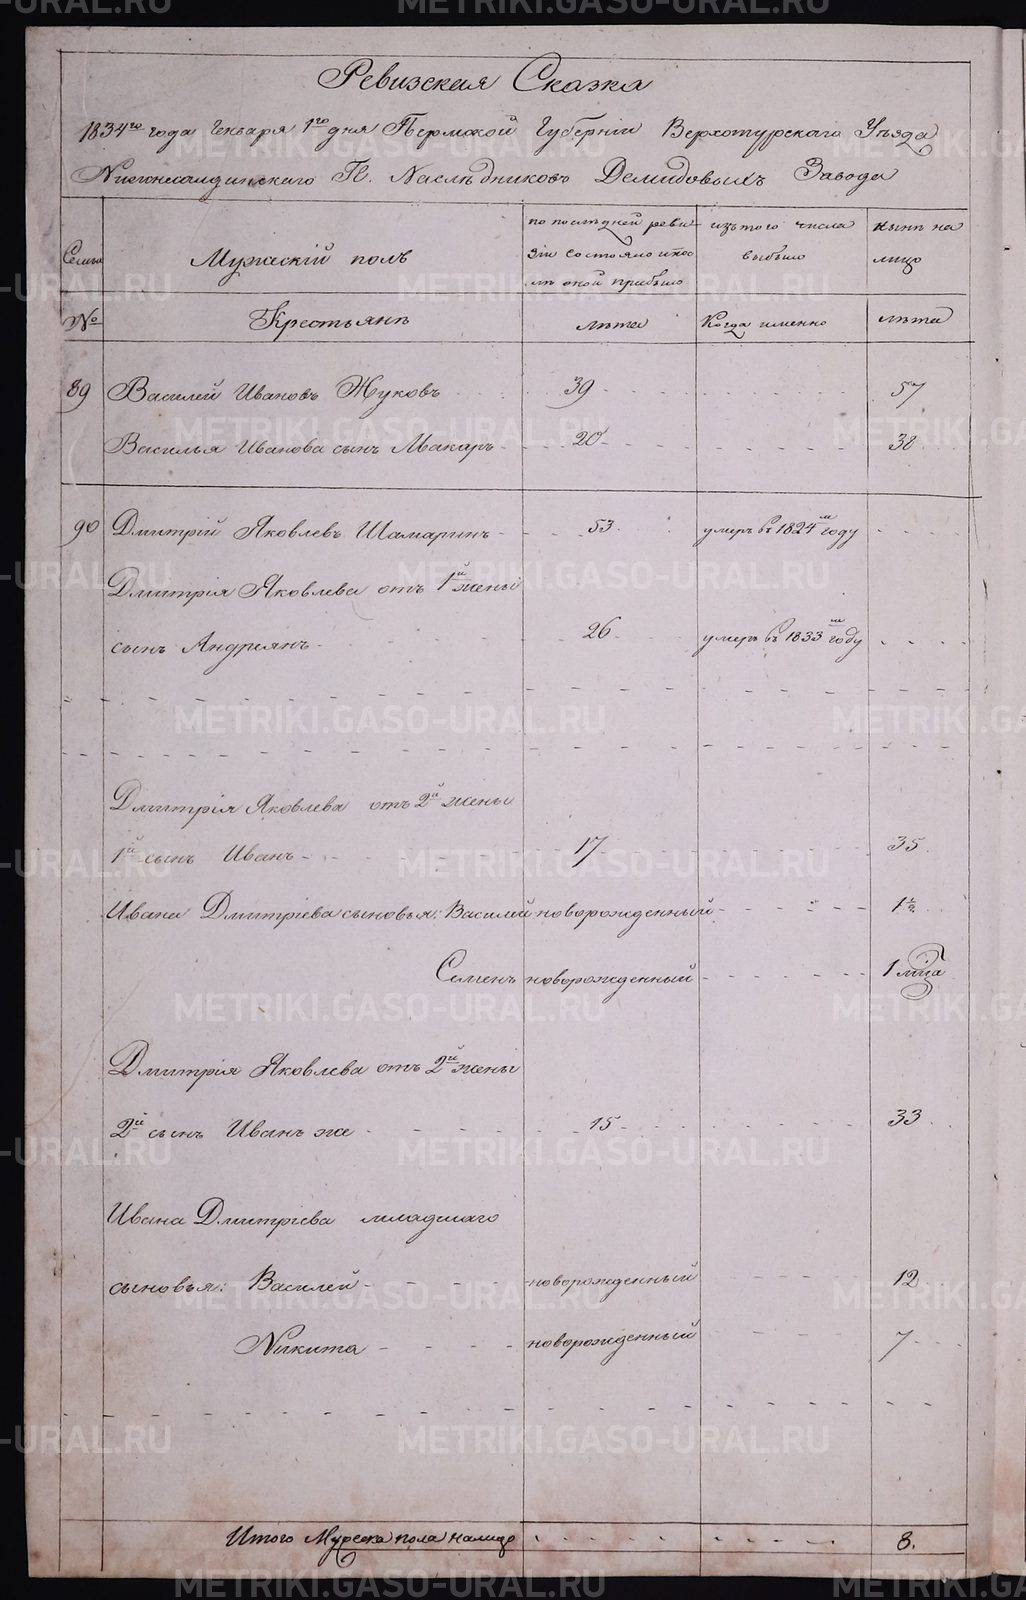 Ревизская Сказка
1834го года Генваря 1го дня Пермской Губернiи Верхотурскаго Уѣзда
Нижнесалдинскаго Г. Наслѣдниковъ Демидовыхъ Завода
Семьи
Мужескiй полъ
по послѣдней реви
зiи состояло и пос
лѣ оной прибыло
изъ того числа
выбыло
нынѣ на
лицо
№
Крестьянѣ
лѣта
Когда именно
лѣта
89 Василей Ивановъ Жуковъ 39 57
Василья Иванова сынъ Макаръ 20 38
90 Дмитрiй Яковлевъ Шамаринъ 53 умеръ въ 1824м году
Дмитрiя Яковлева отъ 1й жены
сынъ Андреянъ 26 умеръ въ 1833м году
Дмитрiя Яковлева отъ 2й жены
1й сынъ Иванъ 17 35
Ивана Дмитрiева сыновья: Василей новорожденный 1½
Семенъ новорожденный 1 мѣца
Дмитрiя Яковлева отъ 2й жены
2й сынъ Иванъ же 15 33
Ивана Дмитрiева младшаго
сыновья: Василей новорожденный 12
Никита новорожденный 7
Итого Мужеска пола налицо 8.
METRIKI.GASO-URAL.RU